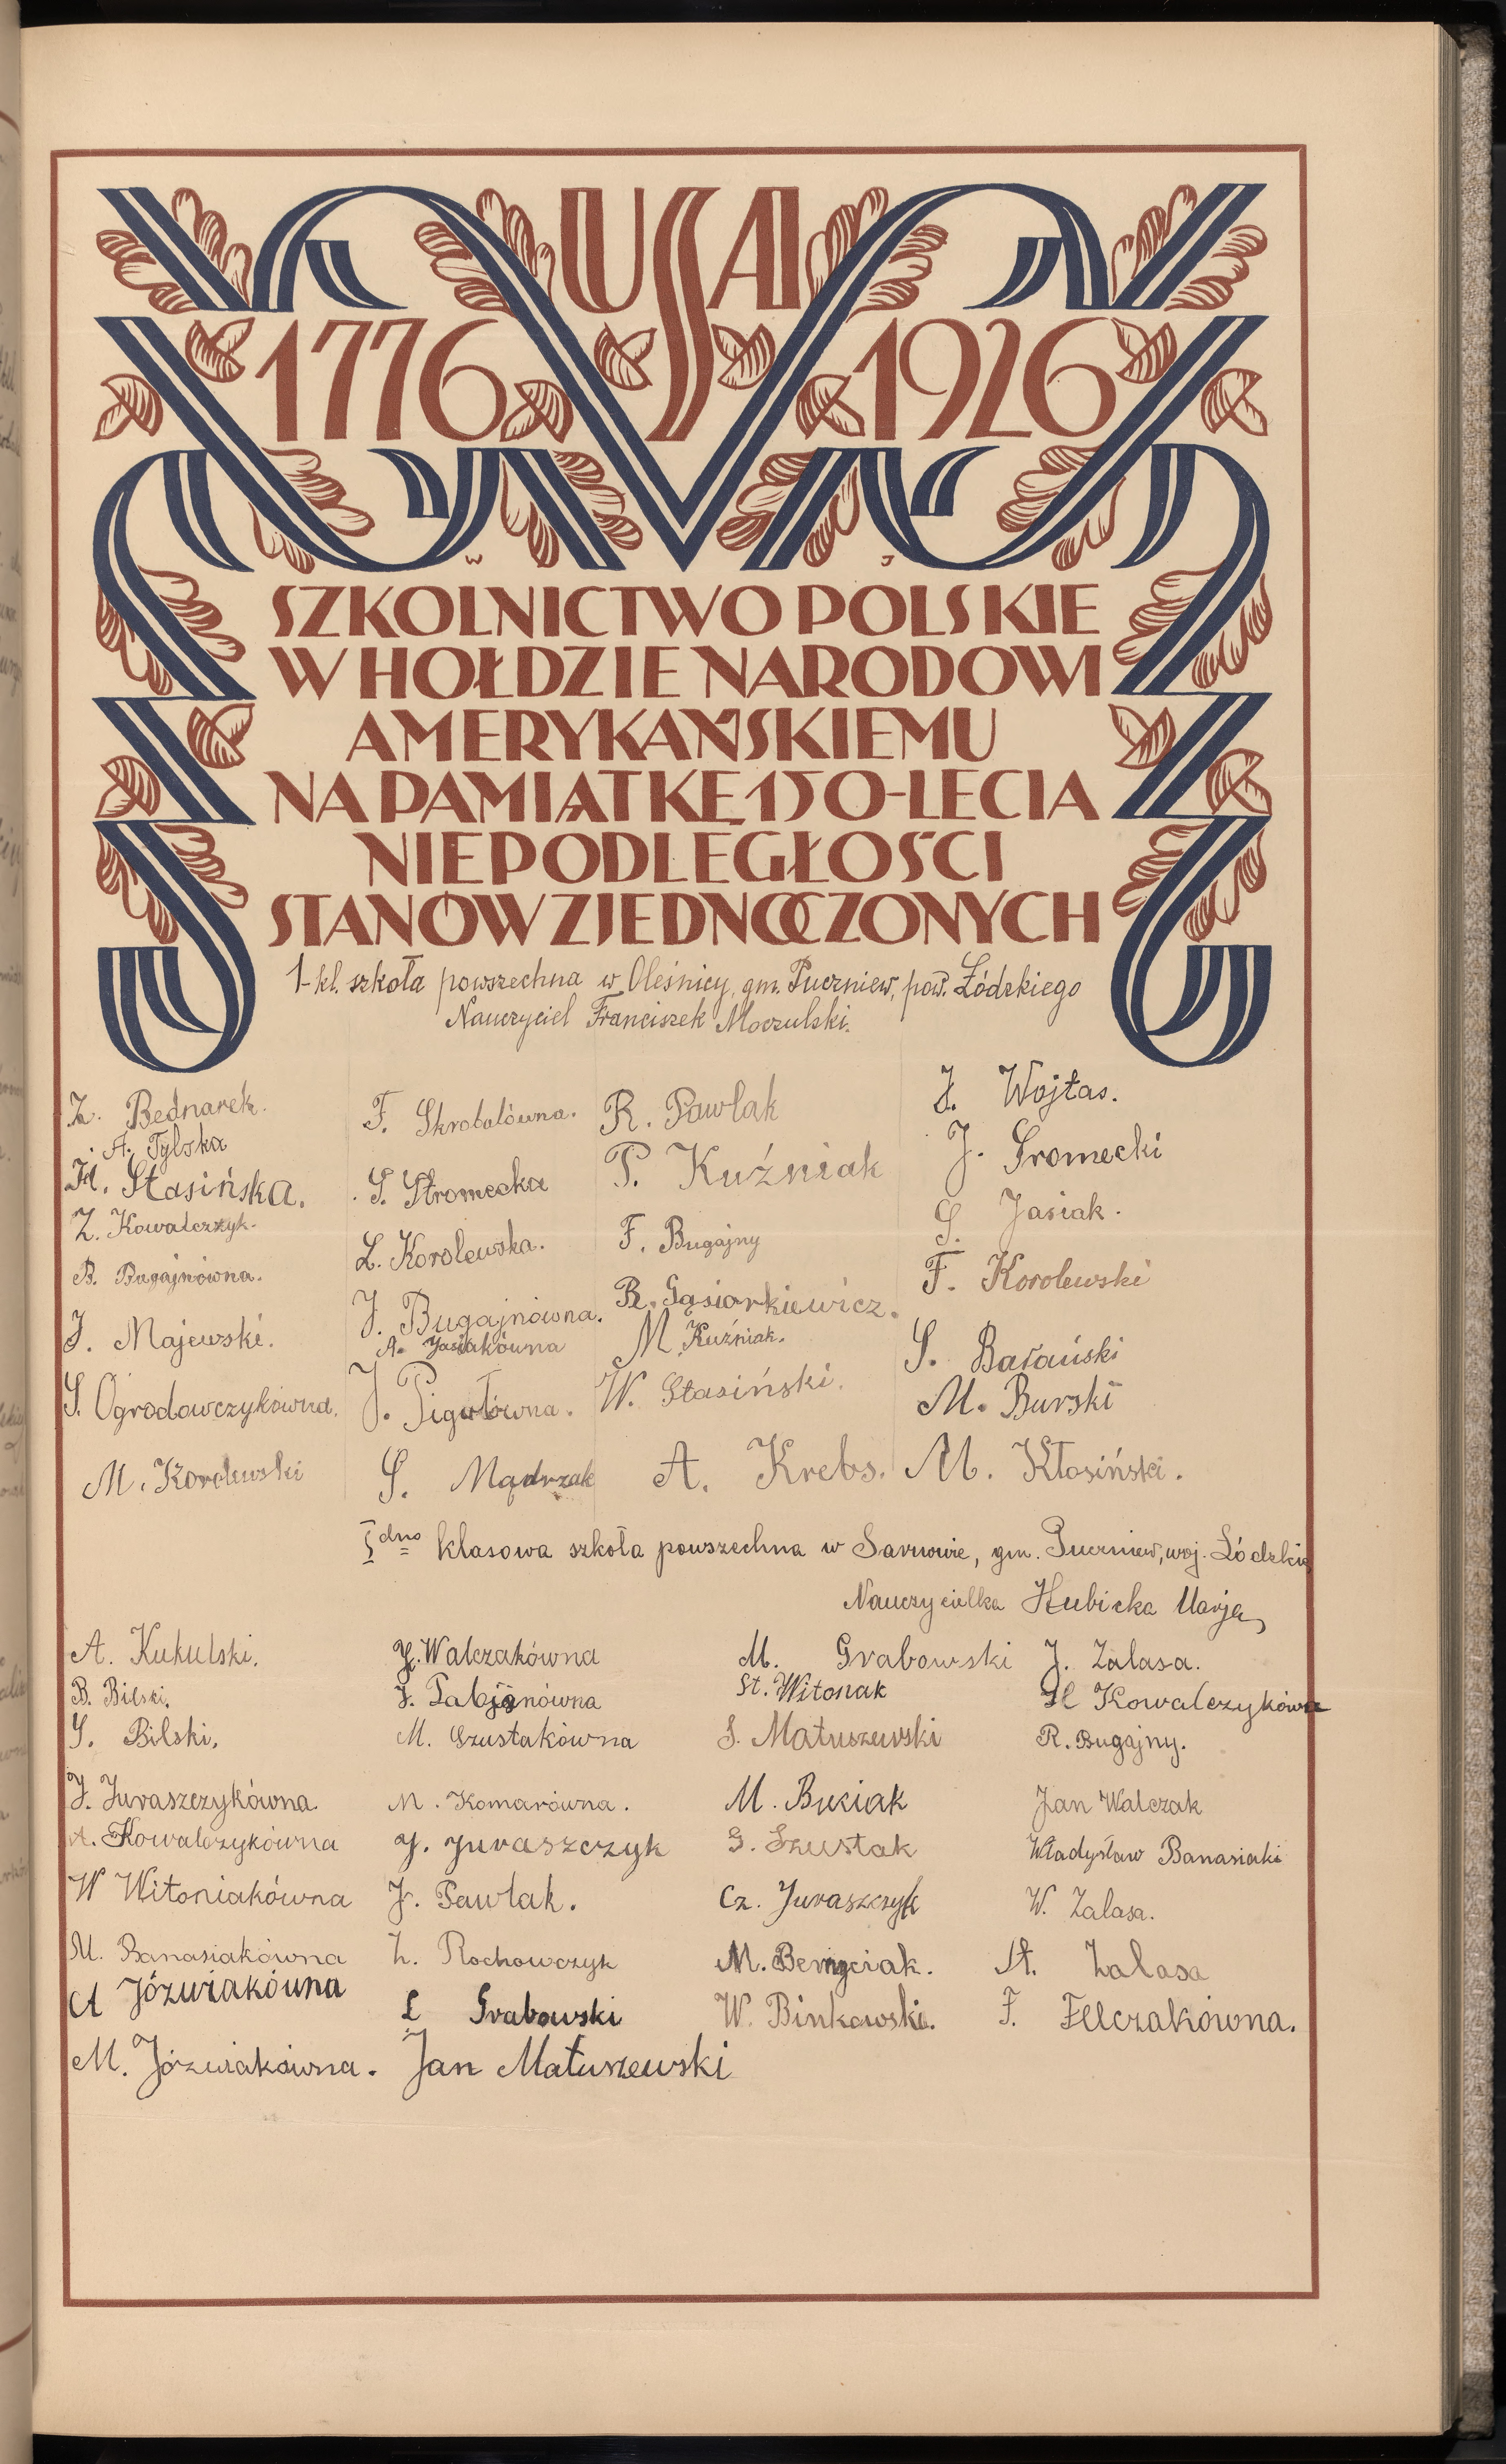 USA
1776 1926
W J
SZKOLNICTWO POLSKIE
W HOŁDZIE NARODOWI
AMERYKAŃSKIEMU
NA PAMIĄTKĘ 150-LECIA
NIEPODLEGŁOŚCI
STANÓW ZJEDNOCZONYCH
1-kl. szkoła powszechna w Oleśnicy, gm. Puczniew, pow. Łódzkiego
Nauczyciel Franciszek Moczulski.
Z. Bednarek. F. Skrobalówna. R. Pawlak J. Wojtas.
A. Tylska
H. Stasińska. S. Stromecka P. Kuźniak J. Sromecki
Z. Kowalczyk. L. Korolewska. F. Bugajny S. Jasiak.
B. Bugajnówna. J. Bugajnówna. R. Gąsiorkiewicz. F. Korolewski
J. Majewski. A. Jasiakówna M. Kuźniak. S. Barański
S. Ogrodowczykówna. J. Pigułówna. W. Stasiński. M. Burski
M. Korolewski S. Mądrzak A. Krebs. M. Kłosiński.
Idno klasowa szkoła powszechna w Sarnowie, gm. Puczniew, woj. Łódzkie
Nauczycielka Hubicka Marja
A. Kukulski. J. Walczakówna M. Grabowski J. Zalasa.
B. Bilski. J. Fabjanówna St. Witonak H Kowalczykówna
S. Bilski. M. Szustakówna S. Matuszewski R. Bugajny.
J. Juraszczykówna. M. Komarówna. M. Buciak Jan Walczak
A. Kowalczykówna J. Juraszczyk G. Szustak Władysław Banasiaki
W Witoniakówna J. Pawlak. Cz. Juraszczyk W. Zalasa.
M. Banasiakówna Z. Rochowczyk M. Bemyciak. St. Zalasa
A Józwiakówna L Grabowski W. Binkowski. F. Felczakówna.
M. Józwiakówna. Jan Matuszewski